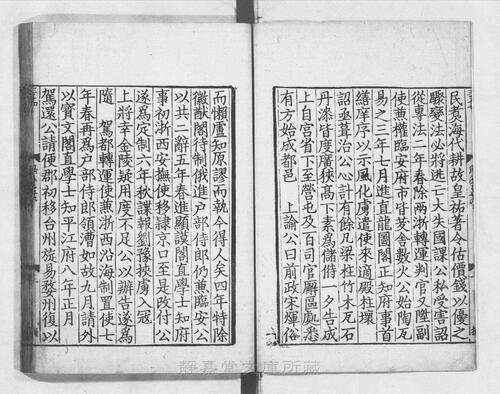 民煑海代耕故皇祐著令估價錢以優之
驟變法必將逃亡大失國課公私受害詔
從專法二年春除兩浙轉運判官又陞副
使兼權臨安府市皆茇舍數火公始陶瓦
易之三年七月進直龍圖閣正知府事首
繕庠序以示風化虜遣使來適殿柱壞
詔亟葺治公心計有餘凡梁柱竹木瓦石
丹漆皆度廣狹高下素為儲偫一夕告成
上自宮省下至營屯及百司官廨區處悉
有方始成都邑 上諭公曰前政宋煇俗
而懶盧知原謬而今得人矣四年特除
徽猷閣待制俄進戶部侍郎仍兼臨安公
以共二辭五年春進顯謨閣直學士知府
事初浙西安撫使移隸京口至是改付公
遂為定制六年秋諜報劉豫挾虜入冦
上將幸金陵疑用度不足公以辦告遂為
隨 駕都轉運使兼浙西沿海制置使七
年春再為戶部侍郎領漕如故九月請外
以寶文閣直學士知平江府八年正月
駕還公請便郡初移台州旋易婺州復以
静嘉堂文庫所藏